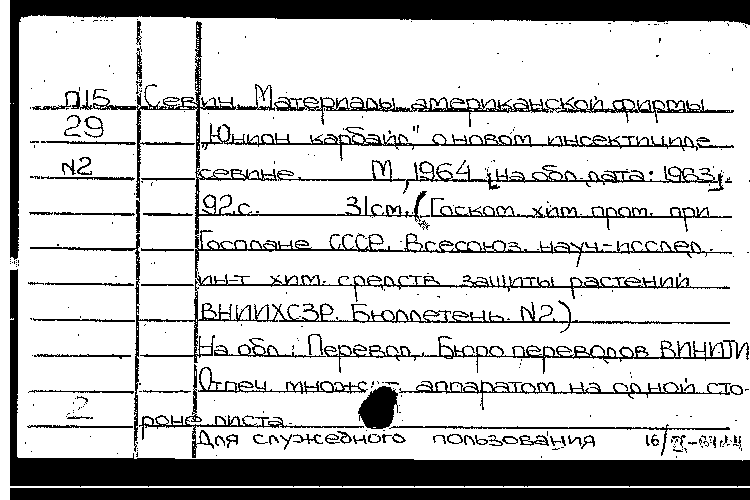 П15 Севин. Материалы американской фирмы
29 „Юнион карбайд" о новом инсектициде
N2 севине. М, 1964 [на обл. дата: 1963].
92.с. 31см. (Госком. хим. пром. при
Госплане СССР. Всесоюз. науч-исслед.
ин-т хим. средств защиты растений
ВНИИХСЗР. Бюллетень. N2.)
На обл.: Перевод. Бюро переводов ВИНИТИ
Отпеч. множит. аппаратом на одной сто-
2 роне листа.
Для служебного пользования 16/